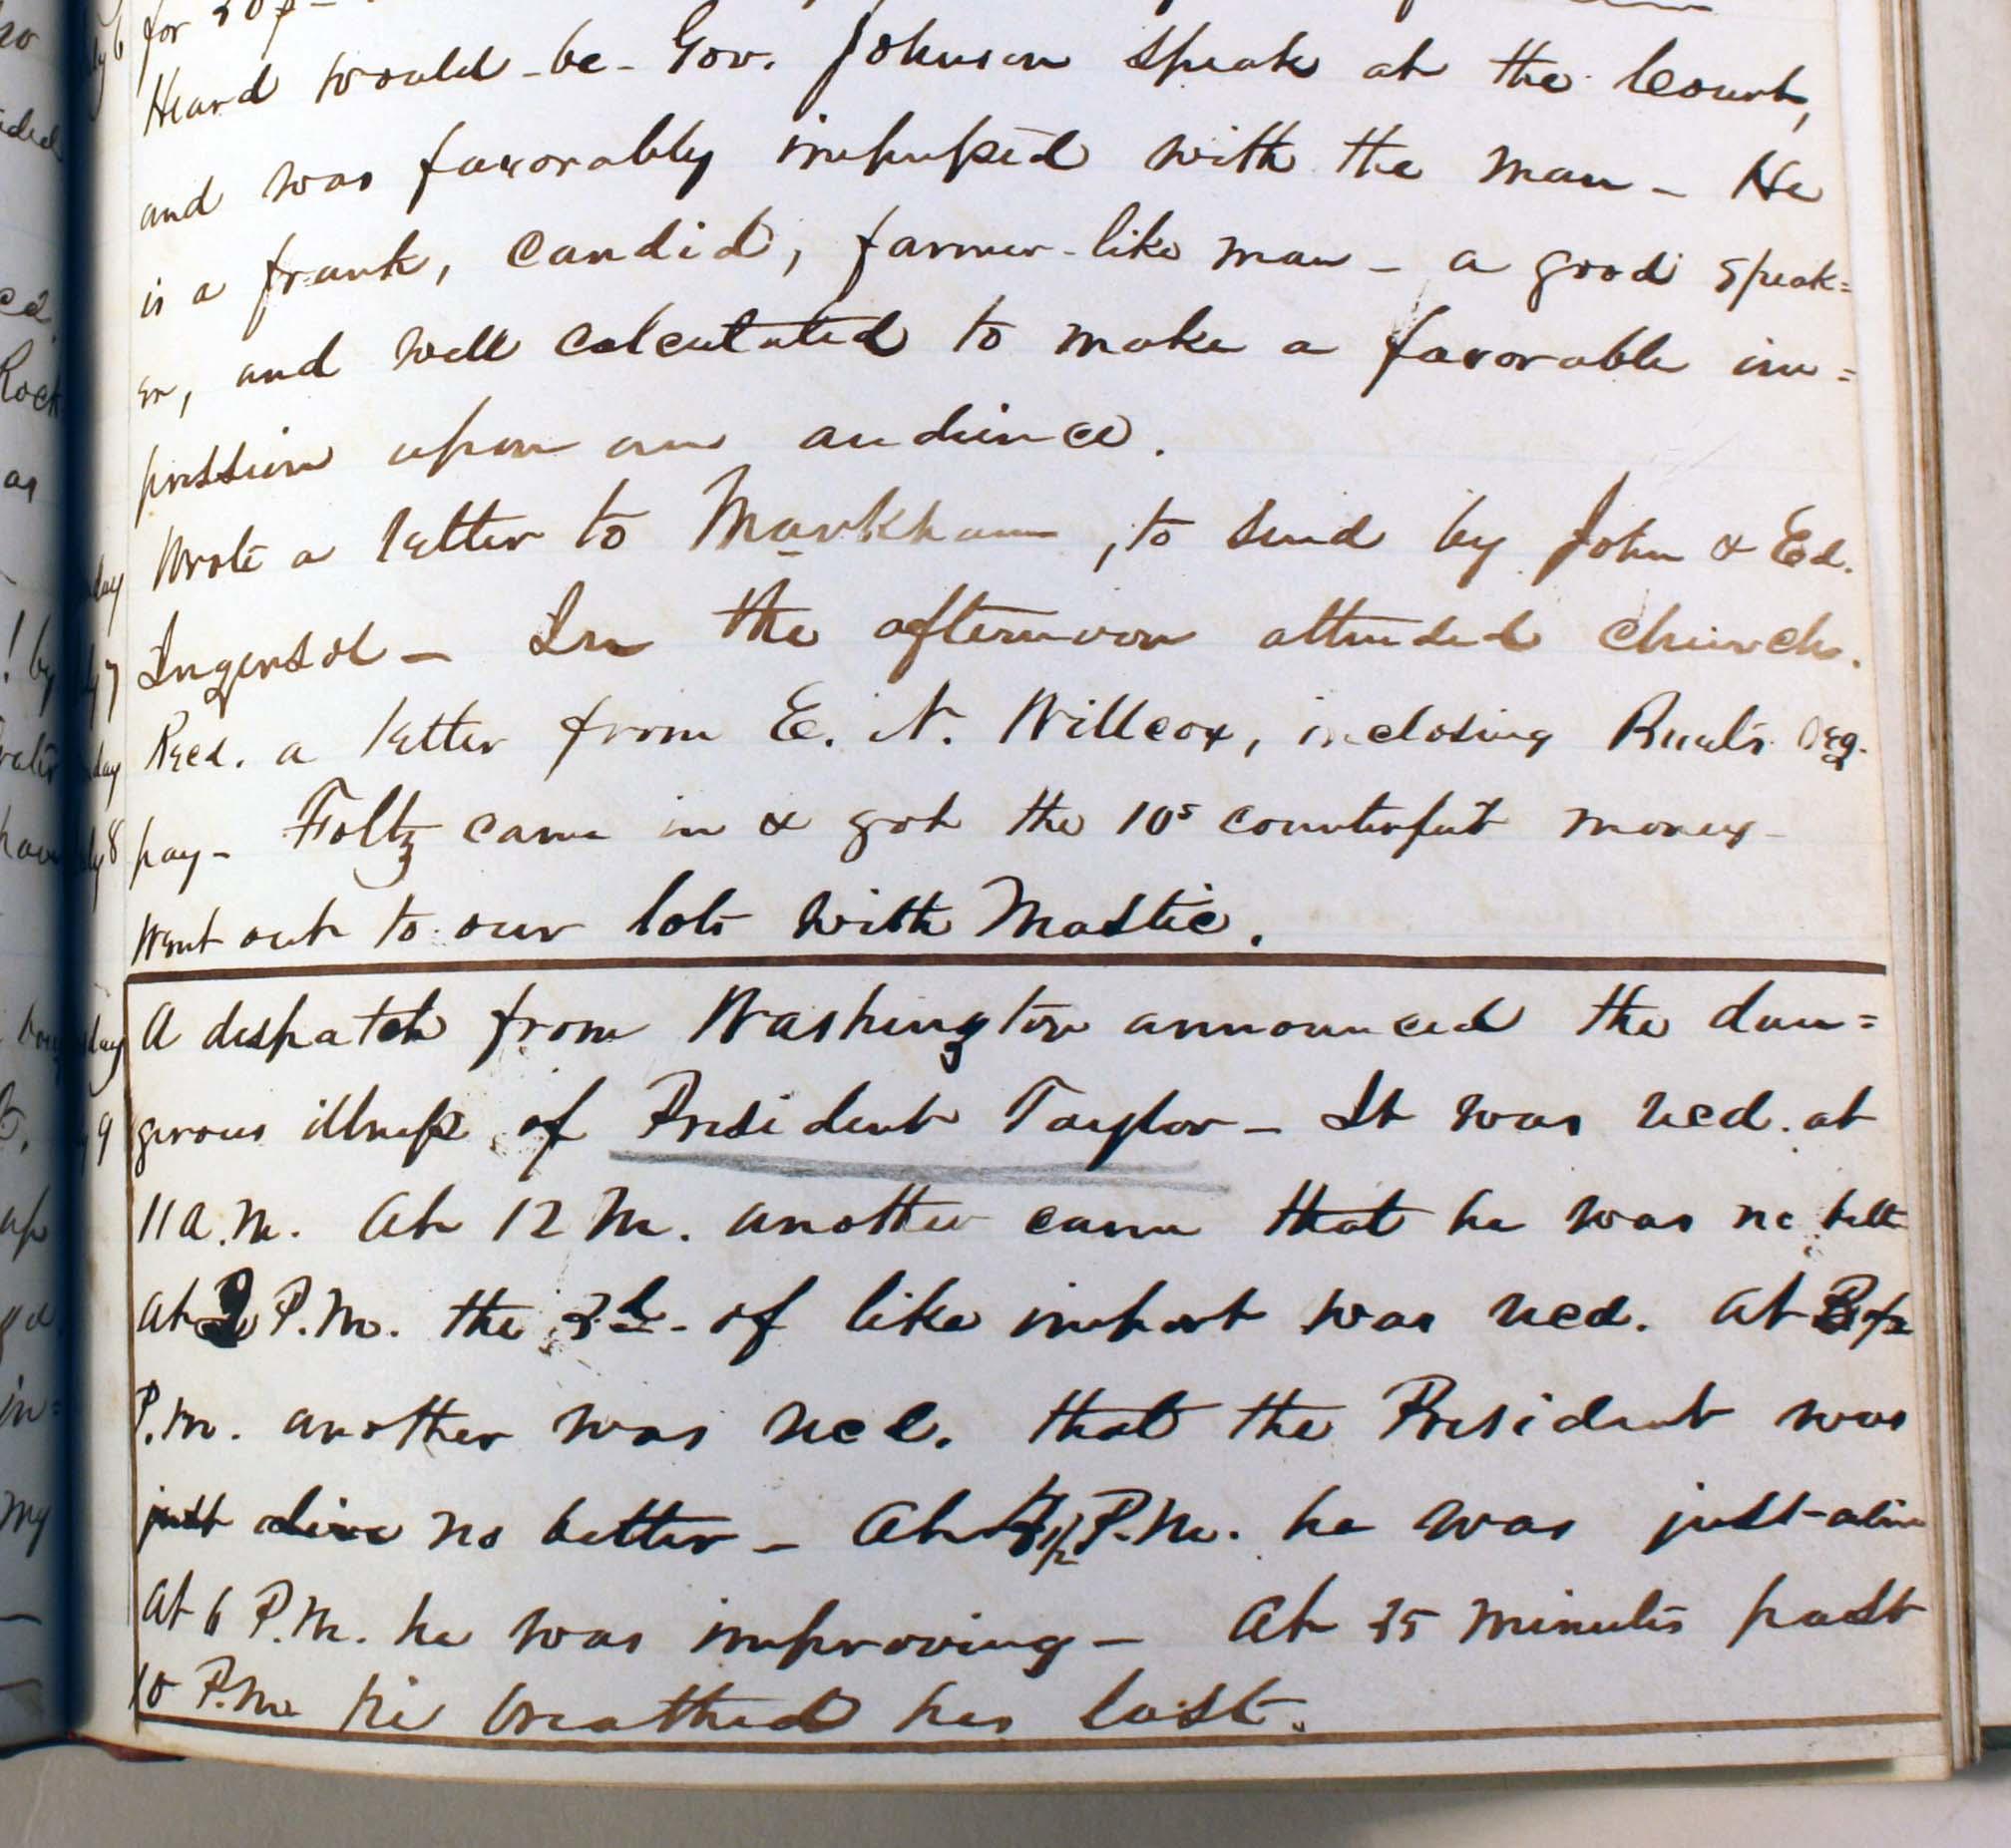 for
Heard would-be-Gov. Johnson speak at the Court,
and was favorably impressed with the man – He
is a frank, candid, farmer-like man – a good speak=
er, and well calculated to make a favorable im=
pression upon an audience.
Wrote a letter to Markham, to send by John & Ed.
Ingersol – In the afternoon attended church.
Recd. a letter from E. N. Willcox, inclosing
pay – Foltz came in & got the 10s counterfeit money –
Went out to our lots with Mastic.
A dispatch from Washington announced the dan=
gerous illness of President Taylor – It was recd. at
11 a.m. At 12 M. another came that he was no bett
at 2 P.M. the 3d. of like import was recd. At
P.M. another was recd. that the President was
just alive no better – At P.M. he was just alive
At 6 P.M. he was improving – At 35 minutes past
10 P.M. he breathed his last.